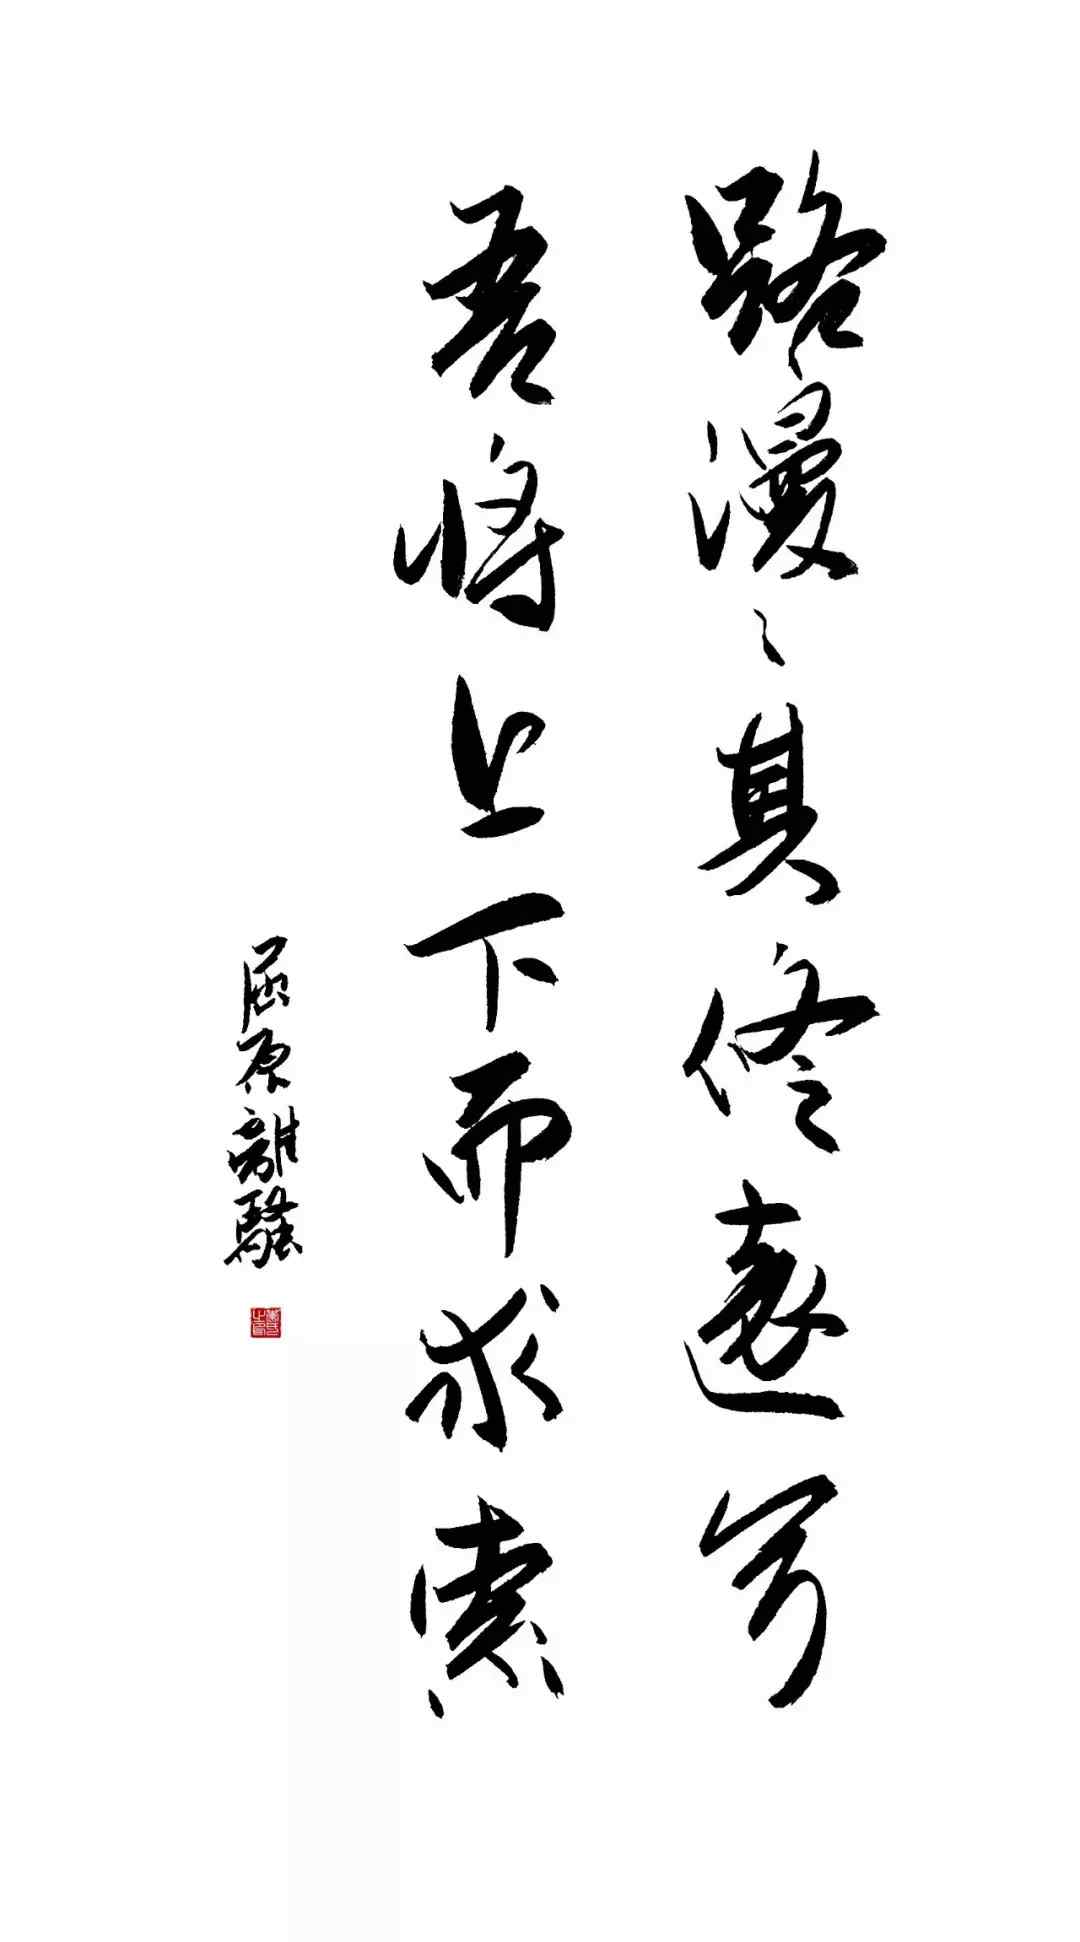 路漫漫其修遠兮
吾將上下而求索
屈原離騷